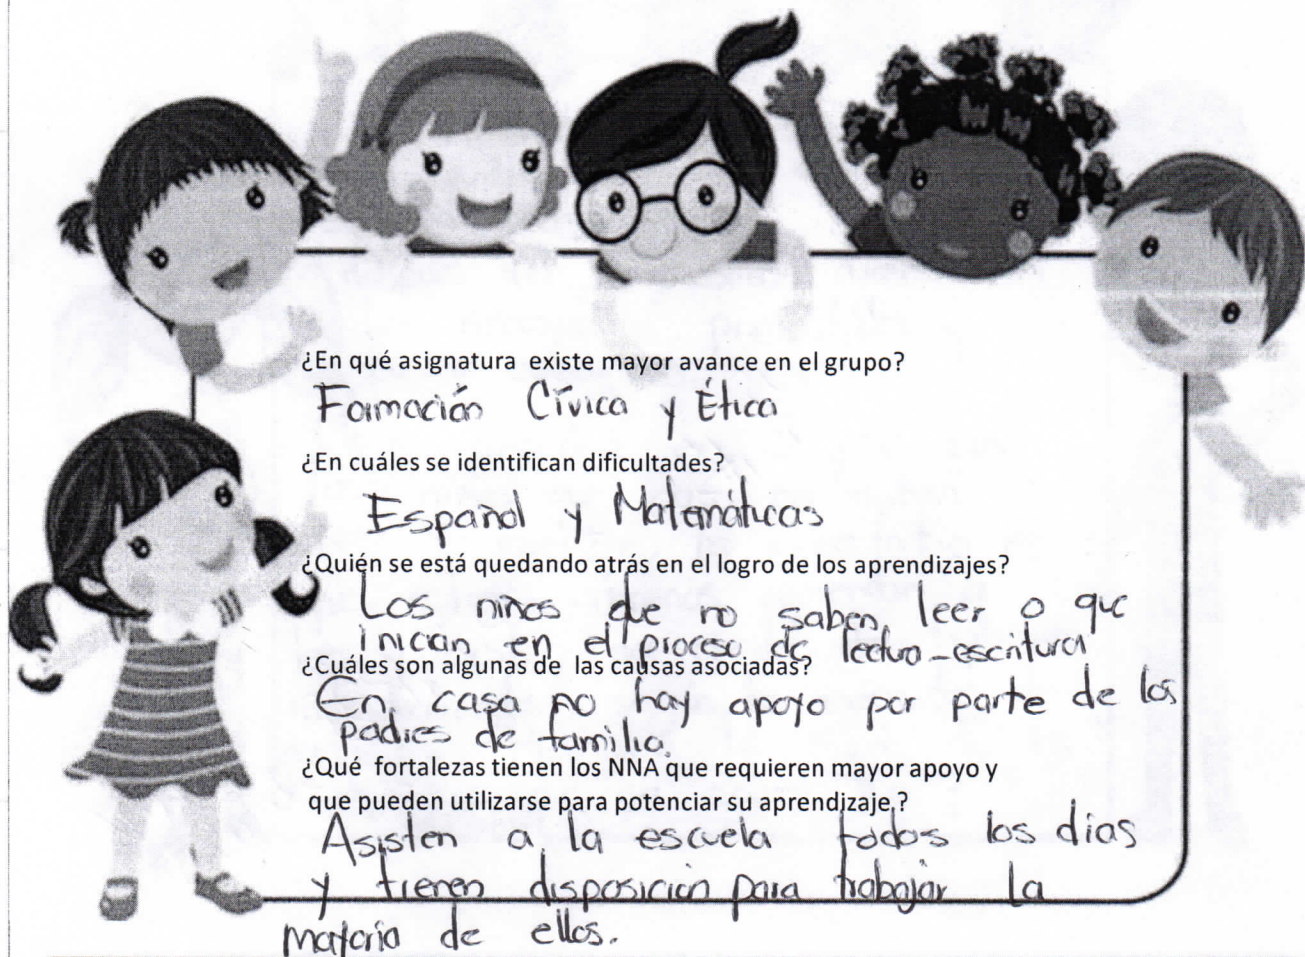 ¿En qué asignatura existe mayor avance en el grupo?
Formación Cívica y Ética
¿En cuáles se identifican dificultades?
Español y Matemáticas
¿Quién se está quedando atrás en el logro de los aprendizajes?
Los niños que no saben leer o que
inician en el proceso de lectura-escritura
¿Cuáles son algunas de las causas asociadas?
En casa no hay apoyo por parte de los
padres de familia.
¿Qué fortalezas tienen los NNA que requieren mayor apoyo y
que pueden utilizarse para potenciar su aprendizaje.?
Asisten a la escuela todos los días
y tienen disposición para trabajar la
mayoría de ellos.